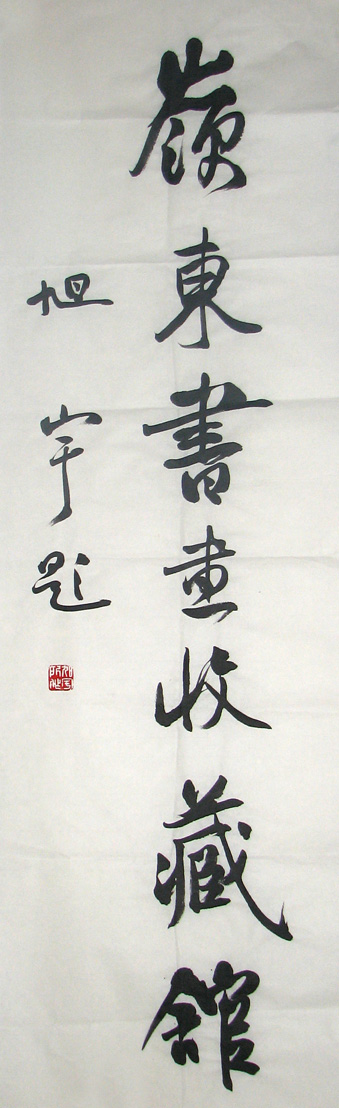 嶺東書畫收藏館
旭宇題